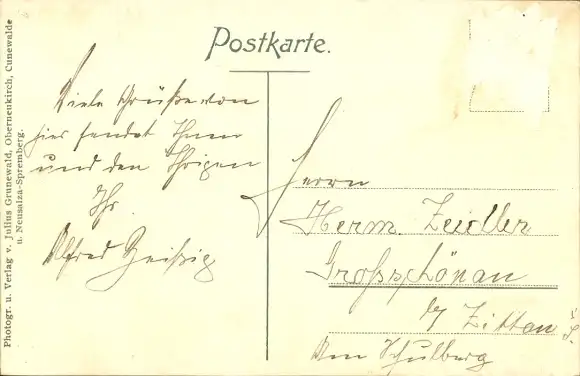 Postkarte.
Viele Grüße von
hier sendet Ihnen
und den Ihrigen
Ihr
Alfred Zeißig
Herrn
Herm. Zeidler
Grossschönau
b/ Zittau i. S.
Am Schulberg
Photogr. u. Verlag v. Julius Grunewald, Oberneukirch, Cunewalde
u. Neusalza-Spremberg.